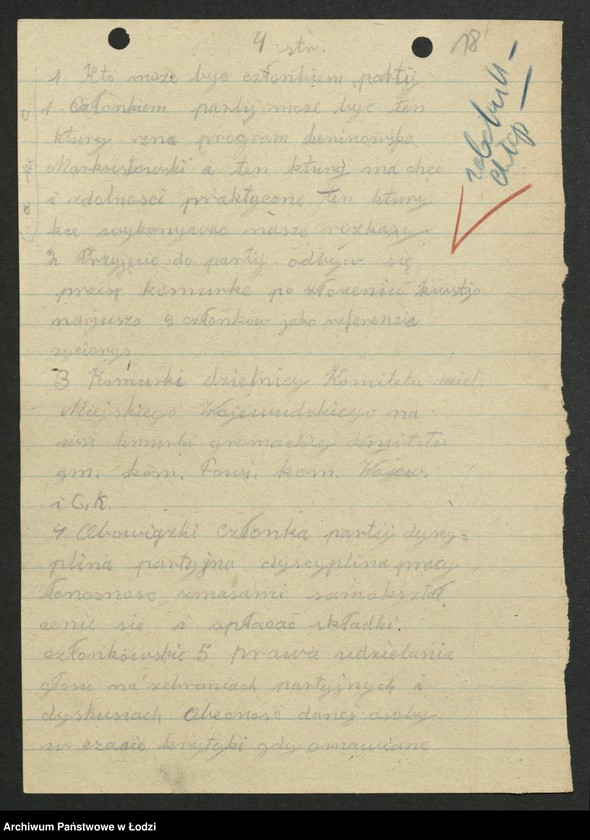 4 str. 18
1 Kto może być członkiem partij
1 Członkiem partij może być ten
ktury zna program Leninowsko
Marksistowski a ten ktury ma chęć
i zdolności praktyczne ten ktury
kce wykonywać nasze rozkazy
2 Przyjęcie do partij odbyw się
przesz komurke po złożeniu kwestjo
narjusza 2 członków jako referencia
życiorys
3 Komurki dzielnicy Komitetu dziel.
Miejskiego Wojewudzkiego na
wsi kmurki gromackiej kmitetu
gm. kom. Powi. kom. Wojew.
i C.K.
4 Obowiązki Członka partij dyscy=
plina partyjna dyscyplina pracy
łonosność zmasami samokształ
cenie się i opłacać składki
członkowskie 5 prawa udzielania
głosu na zebraniach partyjnych i
dyskusiach Obecność danej osoby
w czasie krytyki gdy omawiane
Archiwum Państwowe w Łodzi